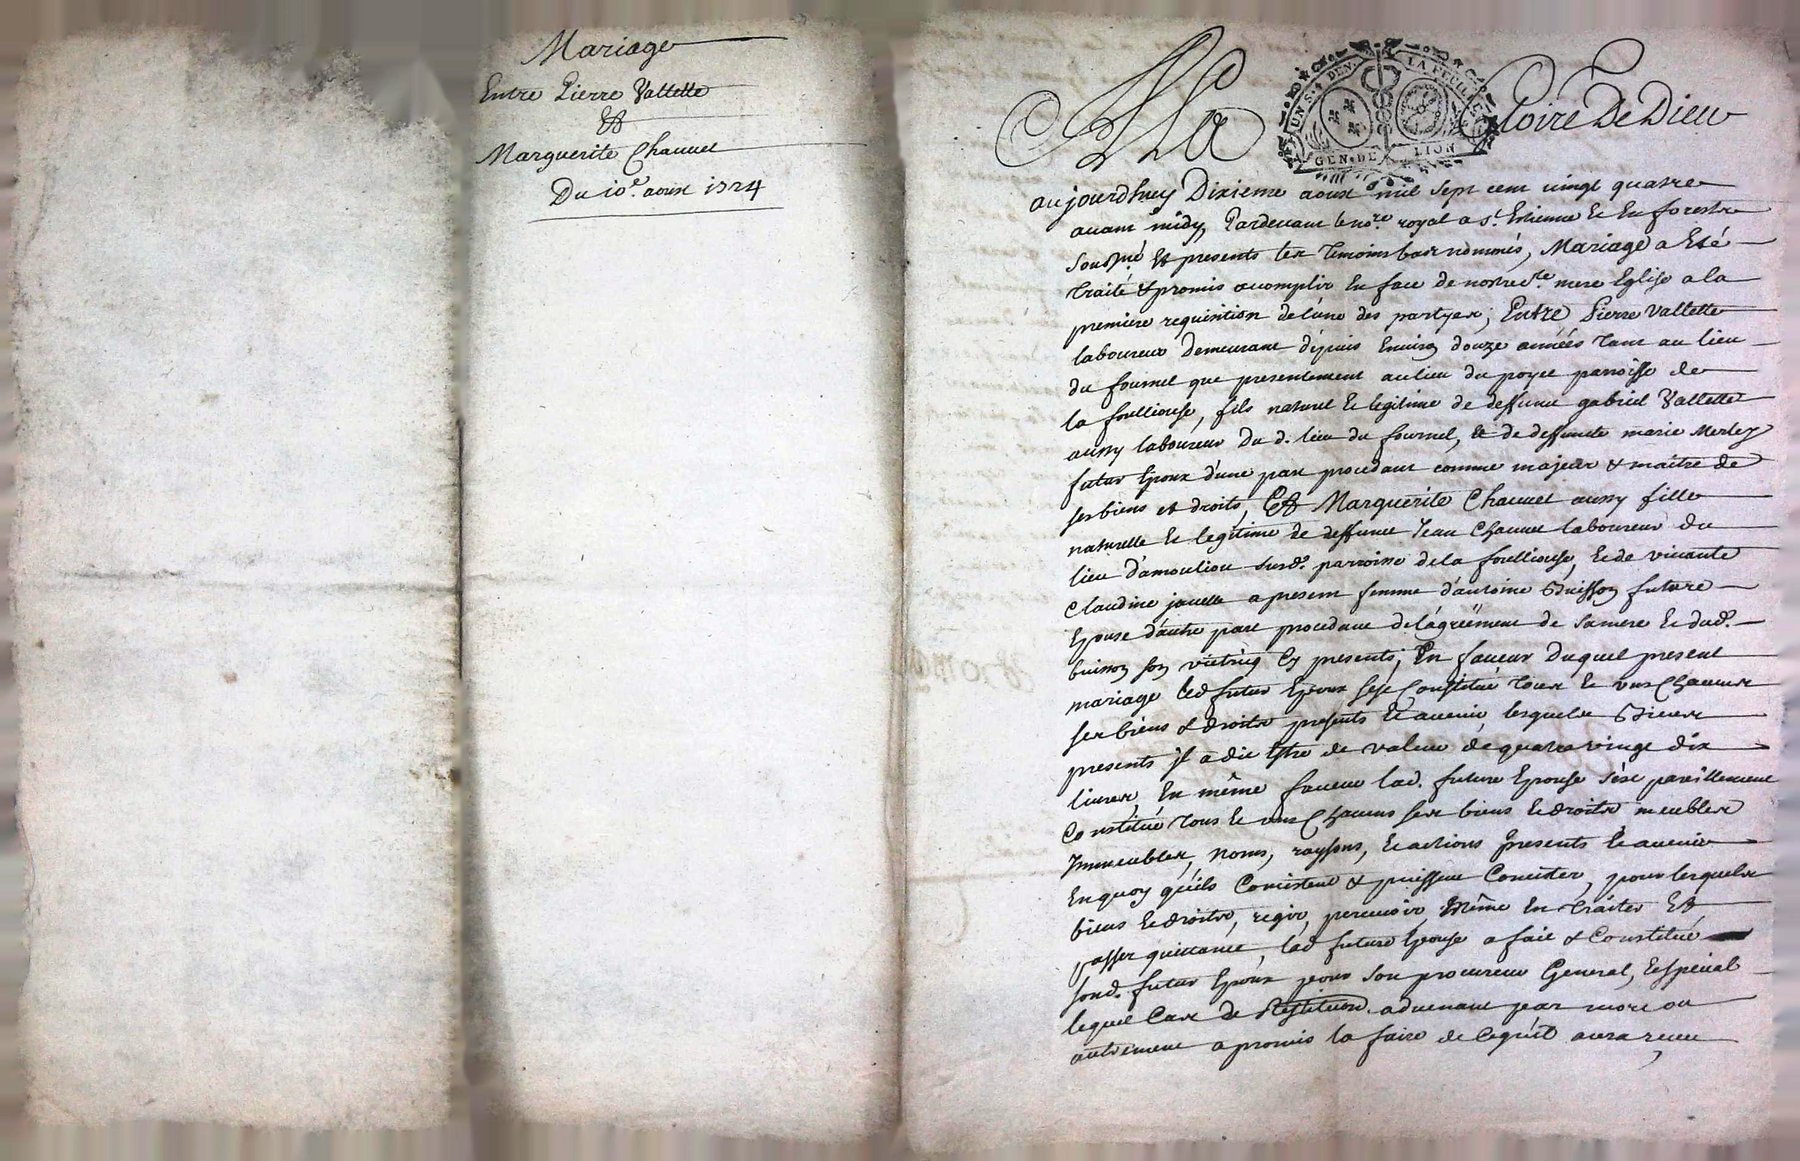 Mariage
Entre Pierre Vallette
Et
Marguerite Chauuet
Du 10e. aoust 1724
A La Gloire De Dieu
UN S. DEN. LA FEUILLE
GEN. DE LION
aujourdhuy Dixieme aoust mil sept cent vingt quatre
auant midy, Pardeuant le nore. royal a St. Estienne & En forestz
soussné. Et presents les temoins bas nommés, Mariage a Esté
traité & promis acomplir En face de nostre ste. mere Eglise a la
premiere requisition de l'une des partyes; Entre Pierre Vallette
laboureur Demeurant depuis Enuiron douze années tant au lieu
du fournel que presentement au lieu du poyet parroisse de
la foüilliouse, fils naturel & legitime de deffunct gabriel Vallette
aussy laboureur du d. lieu du fournel, & de deffuncte marie Merley
futur Epoux d'une part procedant comme majeur & maitre de
ses biens et droits, Et Marguerite Chauuet aussy fille
naturelle & legitime de deffunct Jean Chauuet laboureur du
lieu d'amouliou susd. parroisse de la foüilliouse, & de viuante
Claudine jouette a present femme d'antoine Buisson future
Epouse d'autre part procedant de l'agréement de sa mere & dud.
buisson son Cy presents; En faueur duquel present
mariage led. futur Epoux s'est Constitué tous & uns Chacuns
ses biens & droits presents & auenir, lesquels Biens
presents il a dit Estre de valeur de quatre vingt dix
liures, En même faueur lad. future Epouse s'est pareillement
Constitué tous & uns Chacuns ses biens & droits meubles
Immeubles, noms, raysons, & actions presents & auenir
En quoy qu'ils Consistent & puissent Consister, pour lesquels
biens & droits, regir, perceuoir, même En traiter Et
passer quittance, lad. future Epouse a fait & Constitué
sond. futur Epoux pour son procureur General, & special
lequel Cas de Restitution aduenant par mort ou
autrement a promis la faire de ce qu'il aura receu